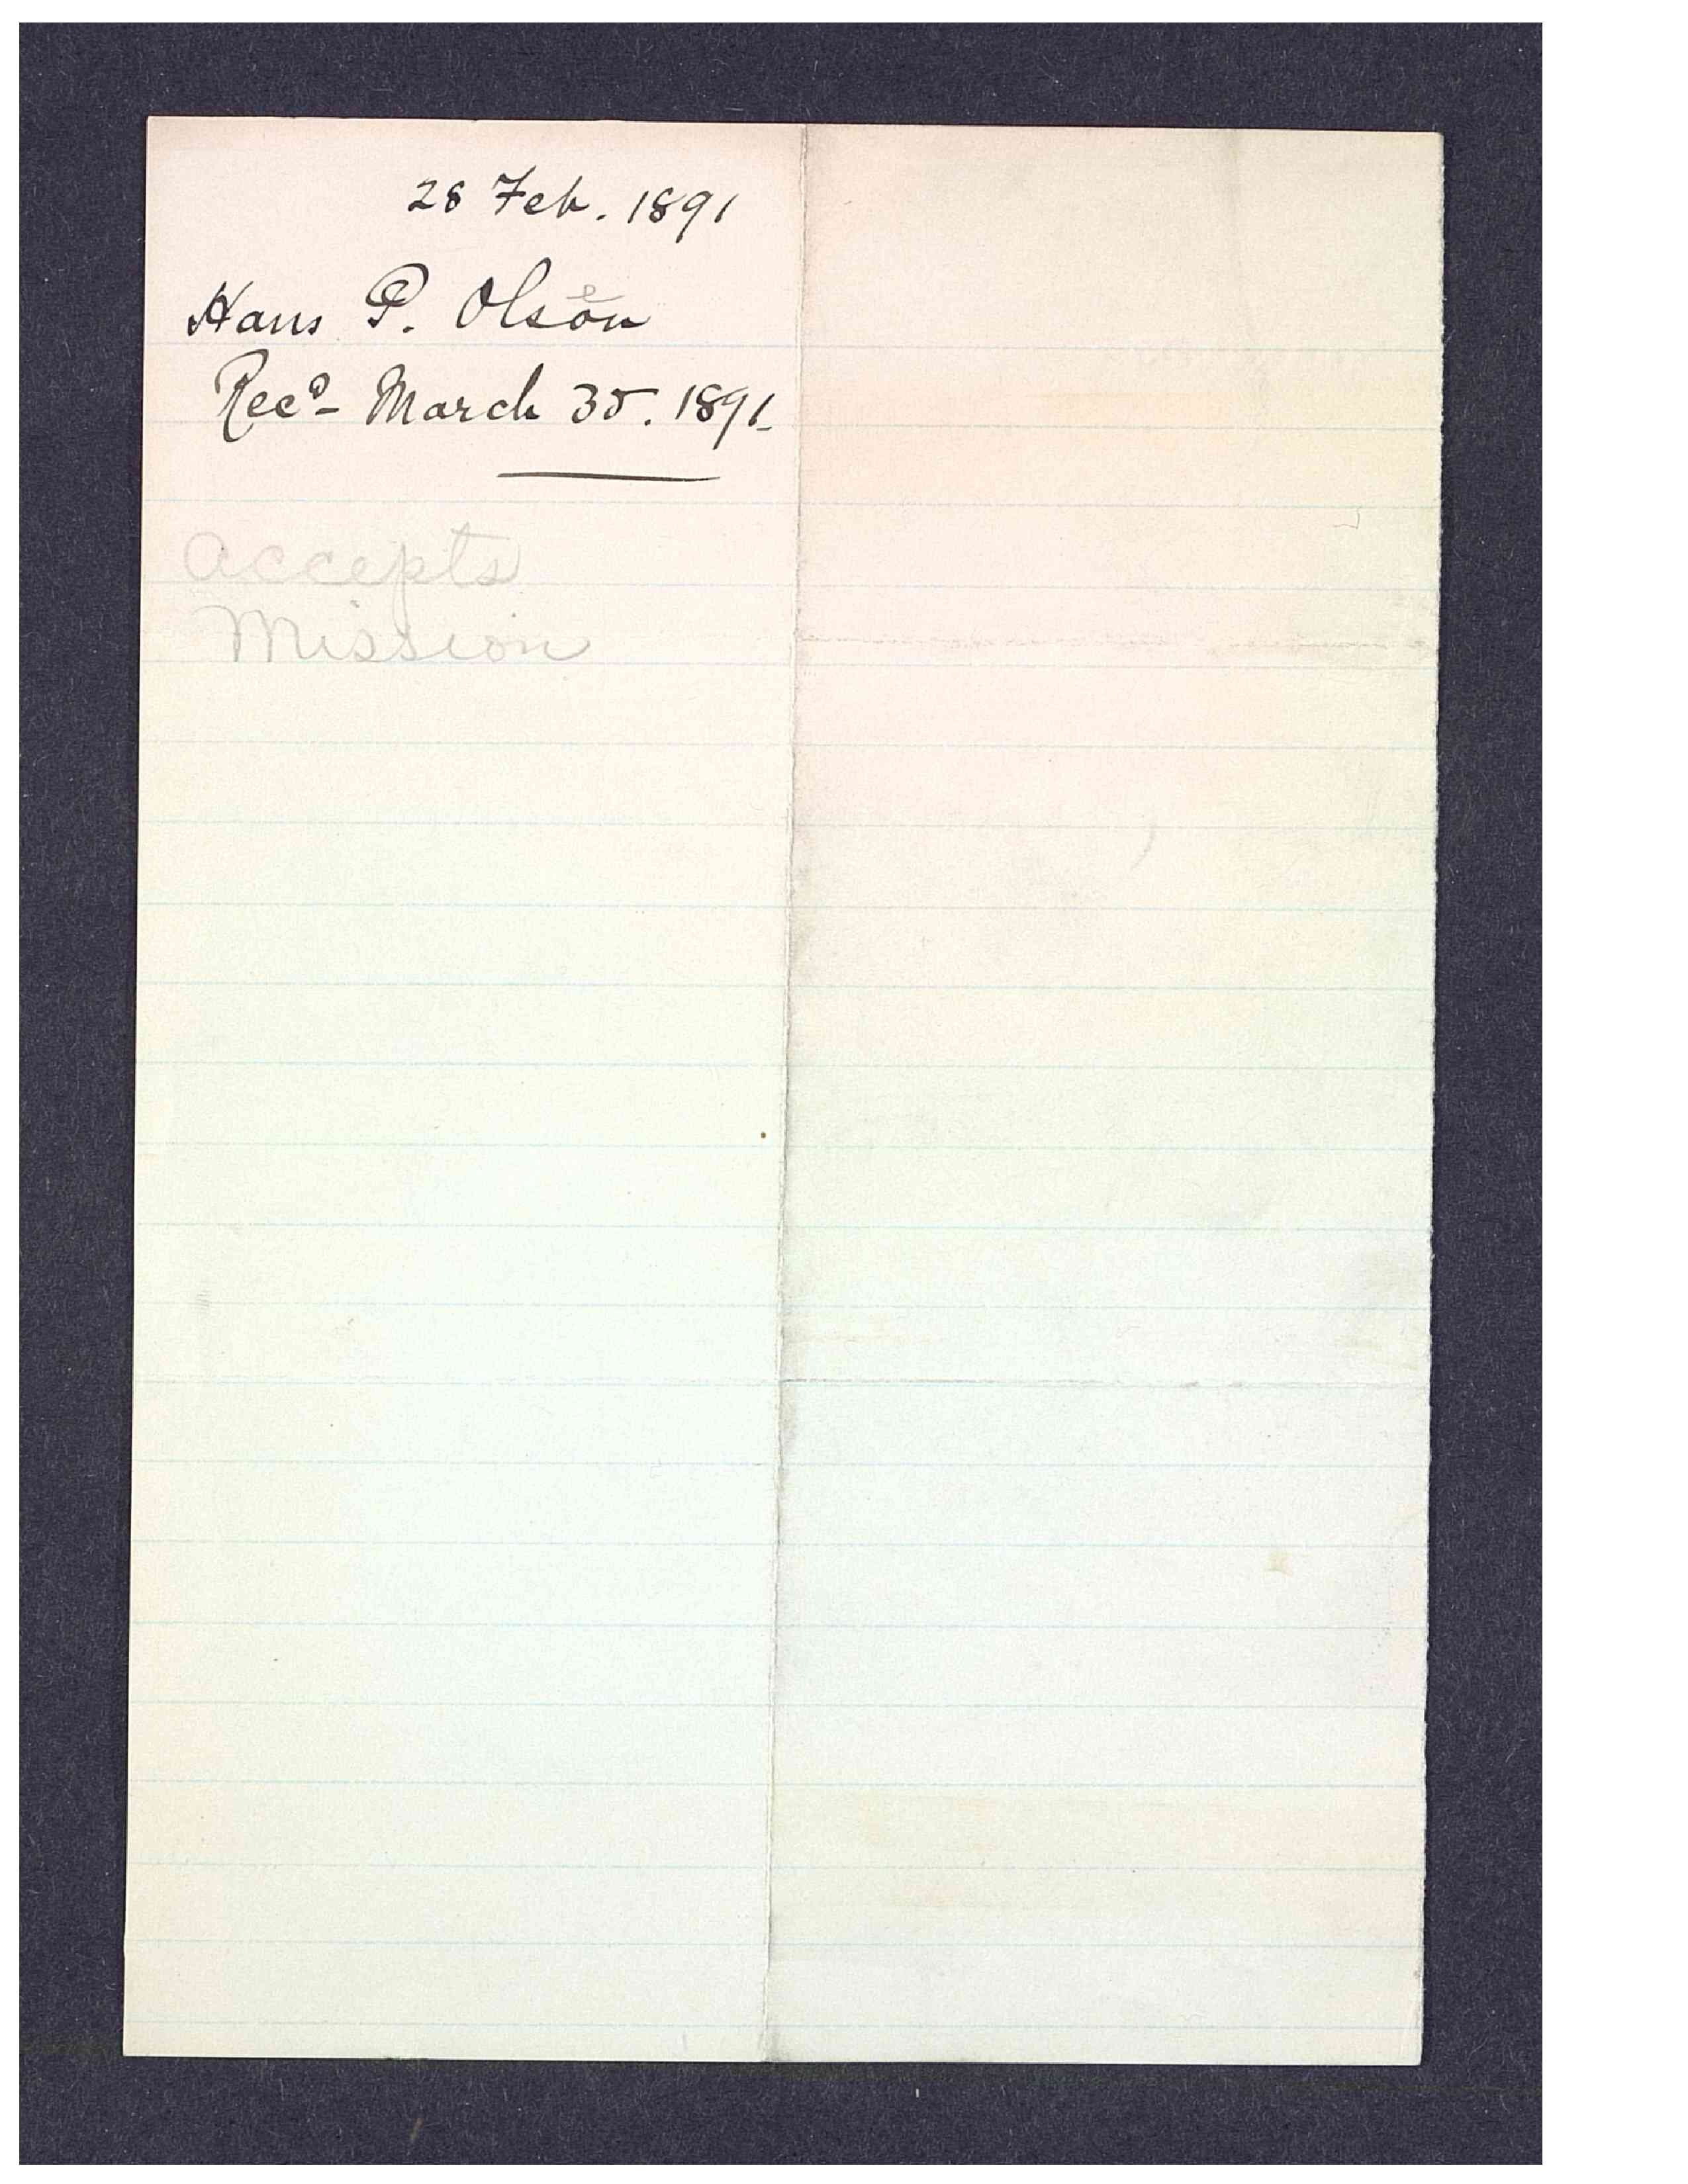 28 Feb. 1891
Hans P. Olson
Recd - March 30. 1891
accepts
Mission